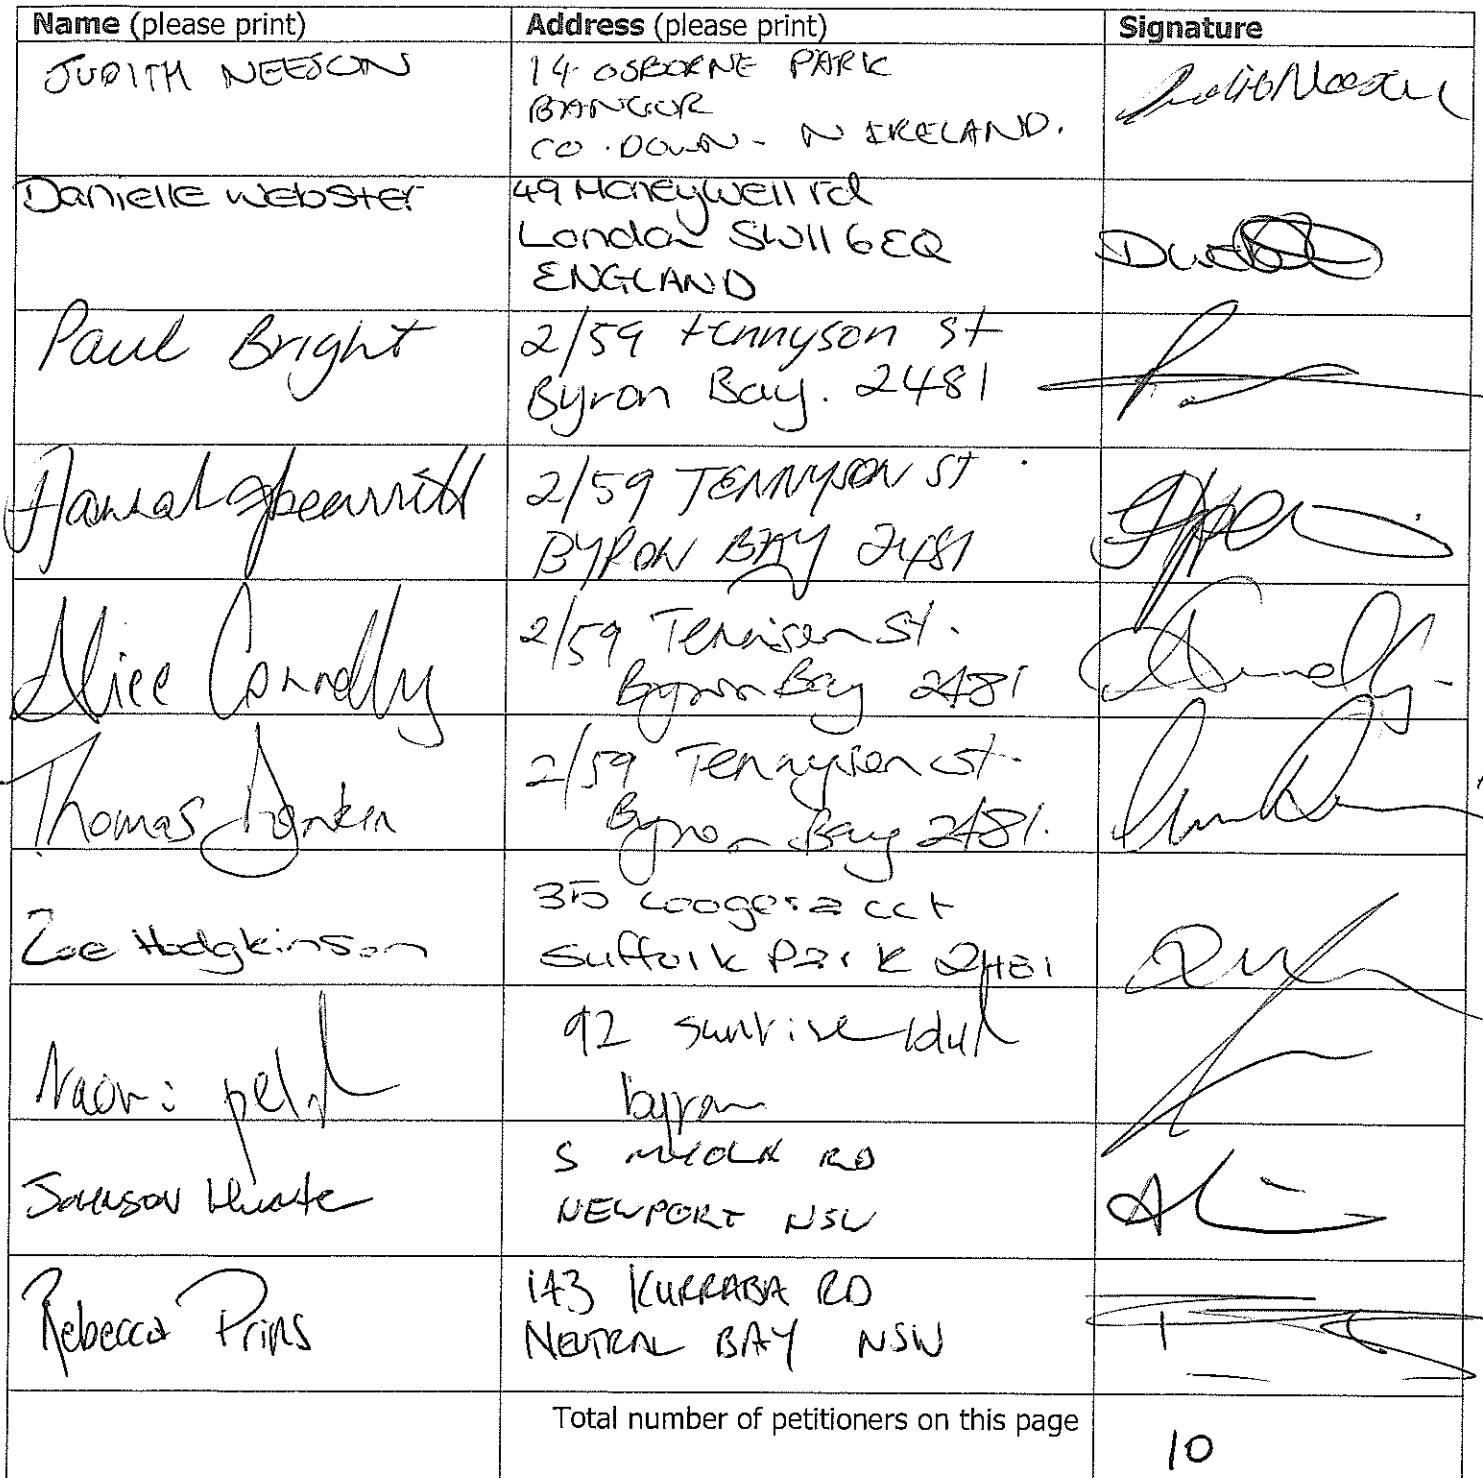 Name (please print) Address (please print) Signature
JUDITH NEESON 14 OSBORNE PARK
BANGOR
CO. DOWN - N IRELAND.
Danielle Webster 49 Honeywell rd
London SW11 6EQ
ENGLAND
Paul Bright 2/59 tennyson st
Byron Bay. 2481
Hannah Spearritt 2/59 TENNYSON ST
BYRON BAY 2481
Alice Connolly 2/59 Tennison St.
Byron Bay 2481
Thomas 2/59 Tennyson st.
Byron Bay 2481.
Zoe Hodgkinson 35 cct
Suffolk Park 2481
Naomi 92 sunrise
byron
RD
NEWPORT NSW
Rebecca Prins 143 KURRABA RD
NEUTRAL BAY NSW
Total number of petitioners on this page 10